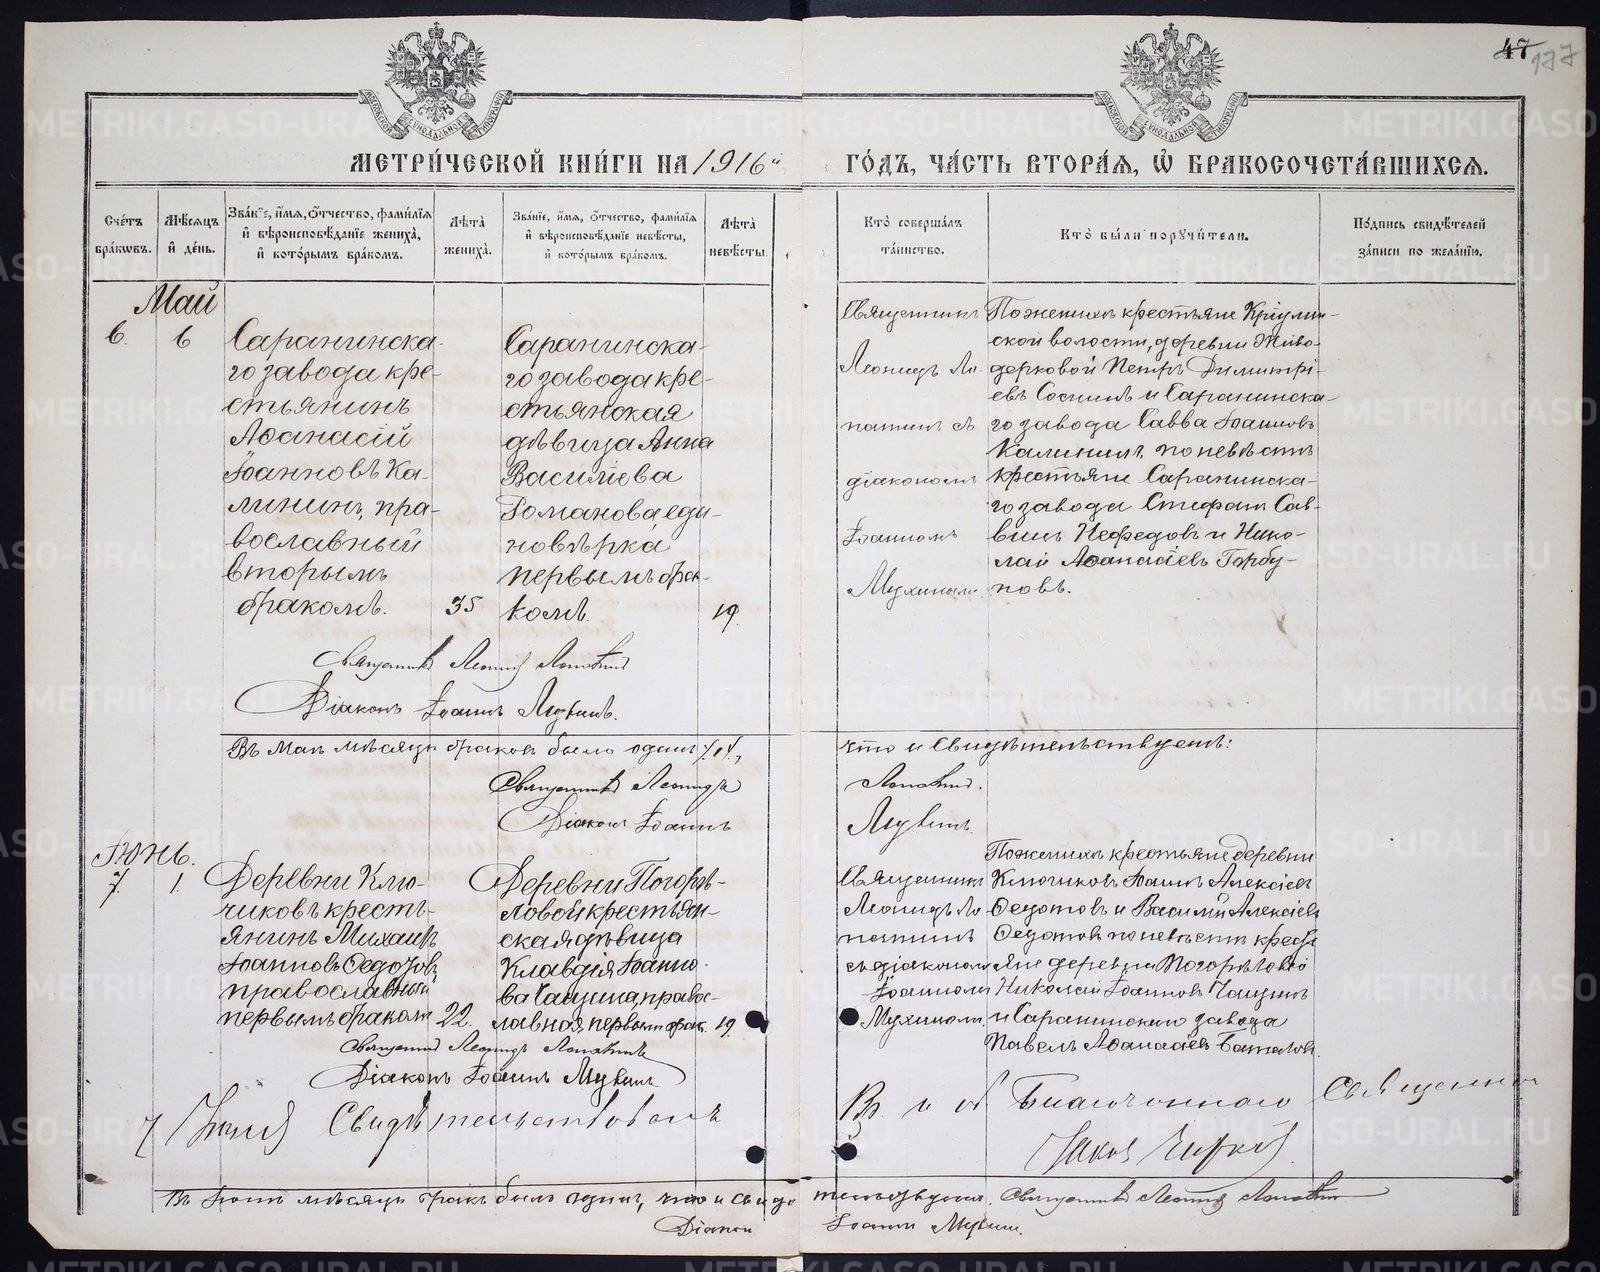 47 177
МЕТРИ́ЧЕСКОЙ КНИ́ГИ НА 1916 й
ГО́ДЪ, ЧА́СТЬ ВТОРА́Я, Ѡ БРАКОСОЧЕТА́ВШИХСЯ.
Сче́тъ бра́ковъ.
Мѣ́сяцъ и де́нь.
Зва́нїе, и́мя, о́тчество, фами́лїя и вѣроисповѣ́данїе жениха̀, и кото́рымъ бра́комъ.
Лѣта̀ жениха̀.
Зва́нїе, и́мя, о́тчество, фами́лїя и вѣроисповѣ́данїе невѣ́сты, и кото́рымъ бра́комъ.
Лѣта̀ невѣ́сты.
Кто̀ соверша́лъ та́инство.
Кто̀ бы́ли поручи́тели.
По́дпись свидѣ́телей за́писи по жела́нїю.
Май
6. 6
Саранинска-
го завода кре-
стьянинъ
Аѳанасій
Іоанновъ Ка-
лининъ, пра-
вославный
вторымъ
бракомъ. 35
Саранинска-
го завода кре-
стьянская
дѣвица Анна
Василіева
Романова, еди-
новѣрка
первымъ бра-
комъ. 19.
Священникъ
Леонидъ Ло-
патинъ съ
діакономъ
Іоанномъ
Мухинымъ.
По женихѣ крестьяне Кріулин-
ской волости, деревни Живо-
дерковой Петръ Димитрі-
евъ Соснинъ и Саранинска-
го завода Савва Іоанновъ
Калининъ, по невѣстѣ
крестьяне Саранинска-
го завода Стефанъ Сав-
винъ Нефедовъ и Нико-
лай Аѳанасіевъ Горбу-
новъ.
Священникъ Леонидъ Лопатинъ
Діаконъ Іоаннъ Мухинъ.
Въ Маѣ мѣсяцѣ браковъ было одинъ /1/, что и свидѣтельствуемъ:
Священникъ Леонидъ Лопатинъ.
Діаконъ Іоаннъ Мухинъ.
Іюнь.
7. 1.
Деревни Клю-
чиковъ кресть-
янинъ Михаилъ
Іоанновъ Ѳедотовъ
православный
первымъ бракомъ 22.
Деревни Погорѣ-
ловой крестьян-
ская дѣвица
Клавдія Іоанно-
ва Чащина, правос-
лавная, первымъ брак. 19.
Священникъ
Леонидъ Ло-
патинъ
съ діакономъ
Іоанномъ
Мухинымъ.
По женихѣ крестьяне деревни
Ключиковъ Іоаннъ Алексіевъ
Ѳедотовъ и Василій Алексіевъ
Ѳедотовъ по невѣстѣ кресть
яне деревни Погорѣловой
Николай Іоанновъ Чащинъ
и Саранинскаго завода
Павелъ Аѳанасіевъ Баталовъ.
Священникъ Леонидъ Лопатинъ
Діаконъ Іоаннъ Мухинъ
7 Іюня Свидѣтельствовалъ
В. и об. Благочиннаго Священникъ
Іаковъ
Въ Іюнѣ мѣсяцѣ бракъ былъ одинъ, что и свидѣтельствуемъ. Священникъ Леонидъ Лопатинъ
Діаконъ Іоаннъ Мухинъ.
METRIKI.GASO-URAL.RU